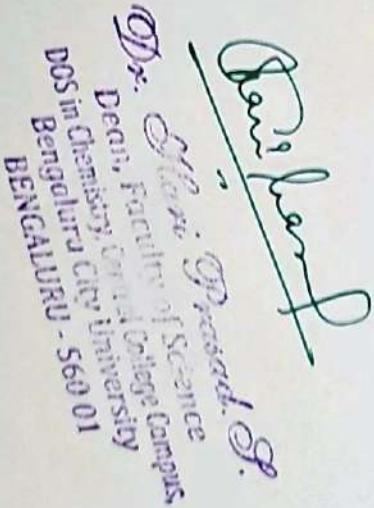 Hari Prasad
Dr. Hari Prasad. S.
Dean, Faculty of Science
DOS in Chemistry, Central College Campus,
Bengaluru City University
BENGALURU - 560 01